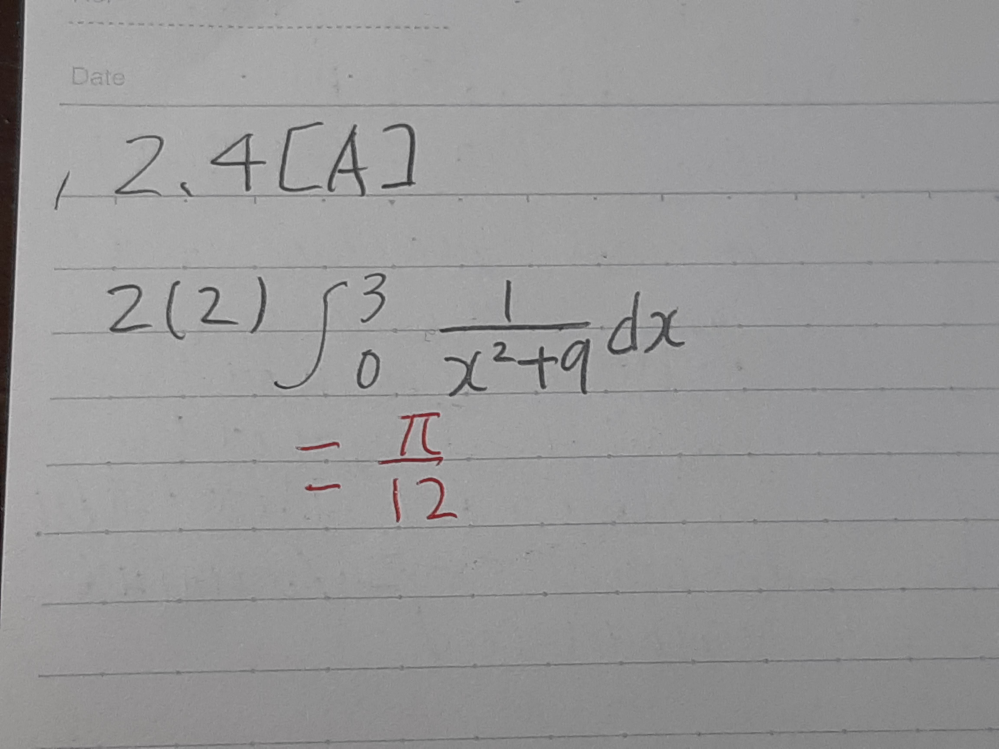 Date
, 2.4[A]
2(2) ∫₀³ 1/(x²+9) dx
= π/12